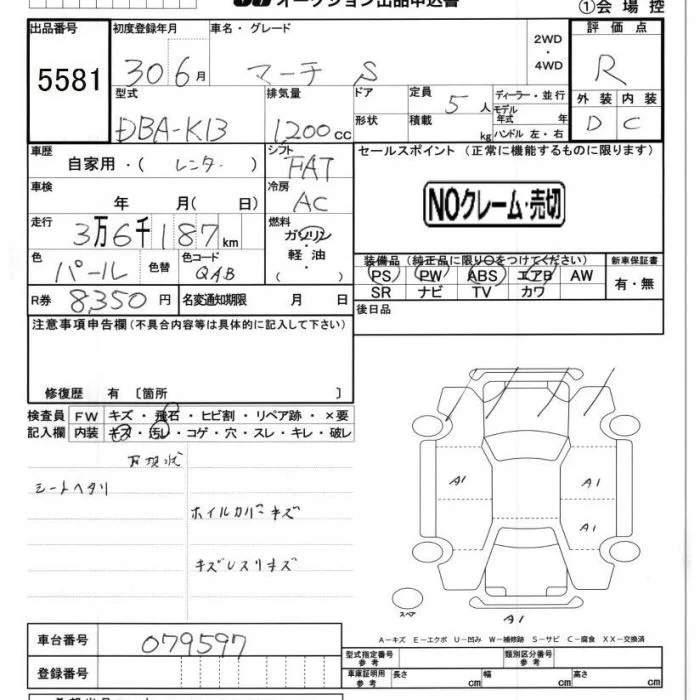 オークション出品申込書
①会場控
出品番号 5581
初度登録年月 30 6月
車名・グレード マーチ S
2WD・4WD
評価点 R
外装 内装
D C
型式 DBA-K13
排気量 1200cc
ドア
形状
定員 5人
積載 kg
ディーラー・並行
モデル年式 年
ハンドル 左・右
車歴 自家用・( レンタ )
シフト FAT
セールスポイント (正常に機能するものに限ります)
車検 年 月( 日)
冷房 AC
NOクレーム・売切
走行 3万6千187km
燃料 ガソリン・軽油 ( )
色 パール 色替
色コード QAB
装備品 (純正品に限り○をつけてください)
新車保証書
PS PW ABS エアB AW
SR ナビ TV カワ
有・無
R券 8,350円
名変通知期限 月 日
後日品
注意事項申告欄(不具合内容等は具体的に記入して下さい)
修復歴 有 〔箇所 〕
検査員 FW キズ・飛石・ヒビ割・リペア跡・×要
記入欄 内装 キズ・汚レ・コゲ・穴・スレ・キレ・破レ
シートヘタリ
ホイルカバーキズ
A1 A1
A1
スペア
A1
A−キズ E−エクボ U−凹み W−補修跡 S−サビ C−腐食 XX−交換済
車台番号 079597
登録番号
型式指定番号 参考
類別区分番号 参考
車庫証明用 参考 長さ cm 幅 cm 高さ cm